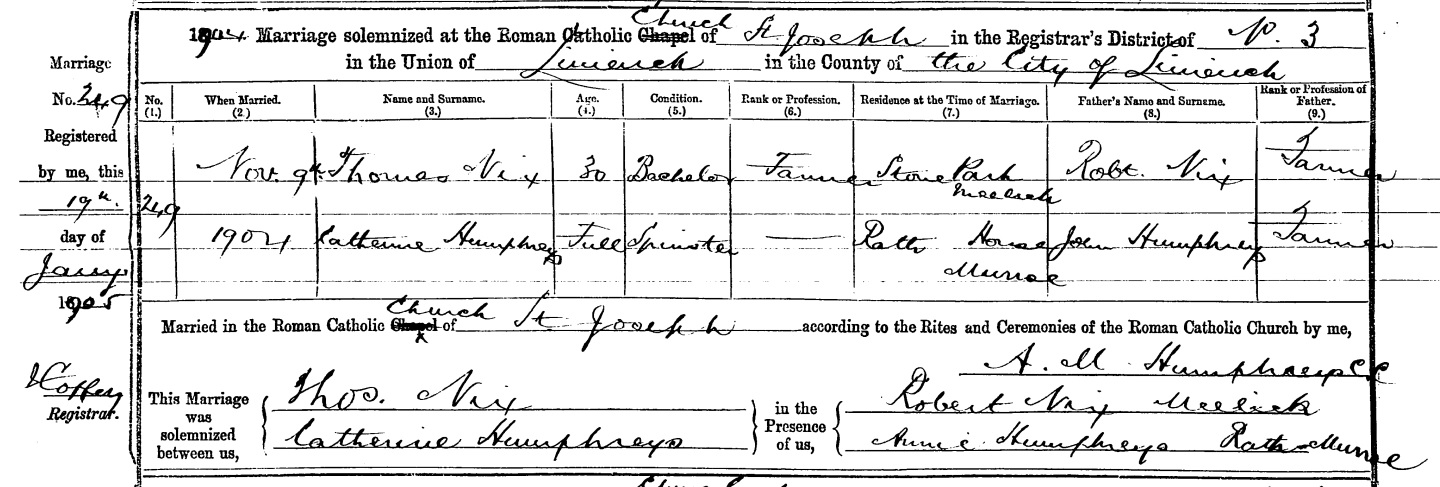 1904 Marriage solemnized at the Roman Catholic Church Chapel of St Joseph in the Registrar's District of No. 3
in the Union of Limerick in the County of the City of Limerick
Marriage
No. 249
Registered
by me, this
19th.
day of
Jany
1905
J Coffey
Registrar.
No. (1.) When Married. (2.) Name and Surname. (3.) Age. (4.) Condition. (5.) Rank or Profession. (6.) Residence at the Time of Marriage. (7.) Father's Name and Surname. (8.) Rank or Profession of Father. (9.)
249 Nov. 9th Thomas Nix 30 Bachelor Farmer Stone Park Meelick Robt. Nix Farmer
1904 Catherine Humphreys Full Spinster — Rath House Murroe John Humphreys Farmer
Married in the Roman Catholic Church Chapel of St Joseph according to the Rites and Ceremonies of the Roman Catholic Church by me,
A. M. Humphreys C.C
This Marriage was solemnized between us,
Thos. Nix
Catherine Humphreys
in the Presence of us,
Robert Nix Meelick
Annie Humphreys Rath Murroe